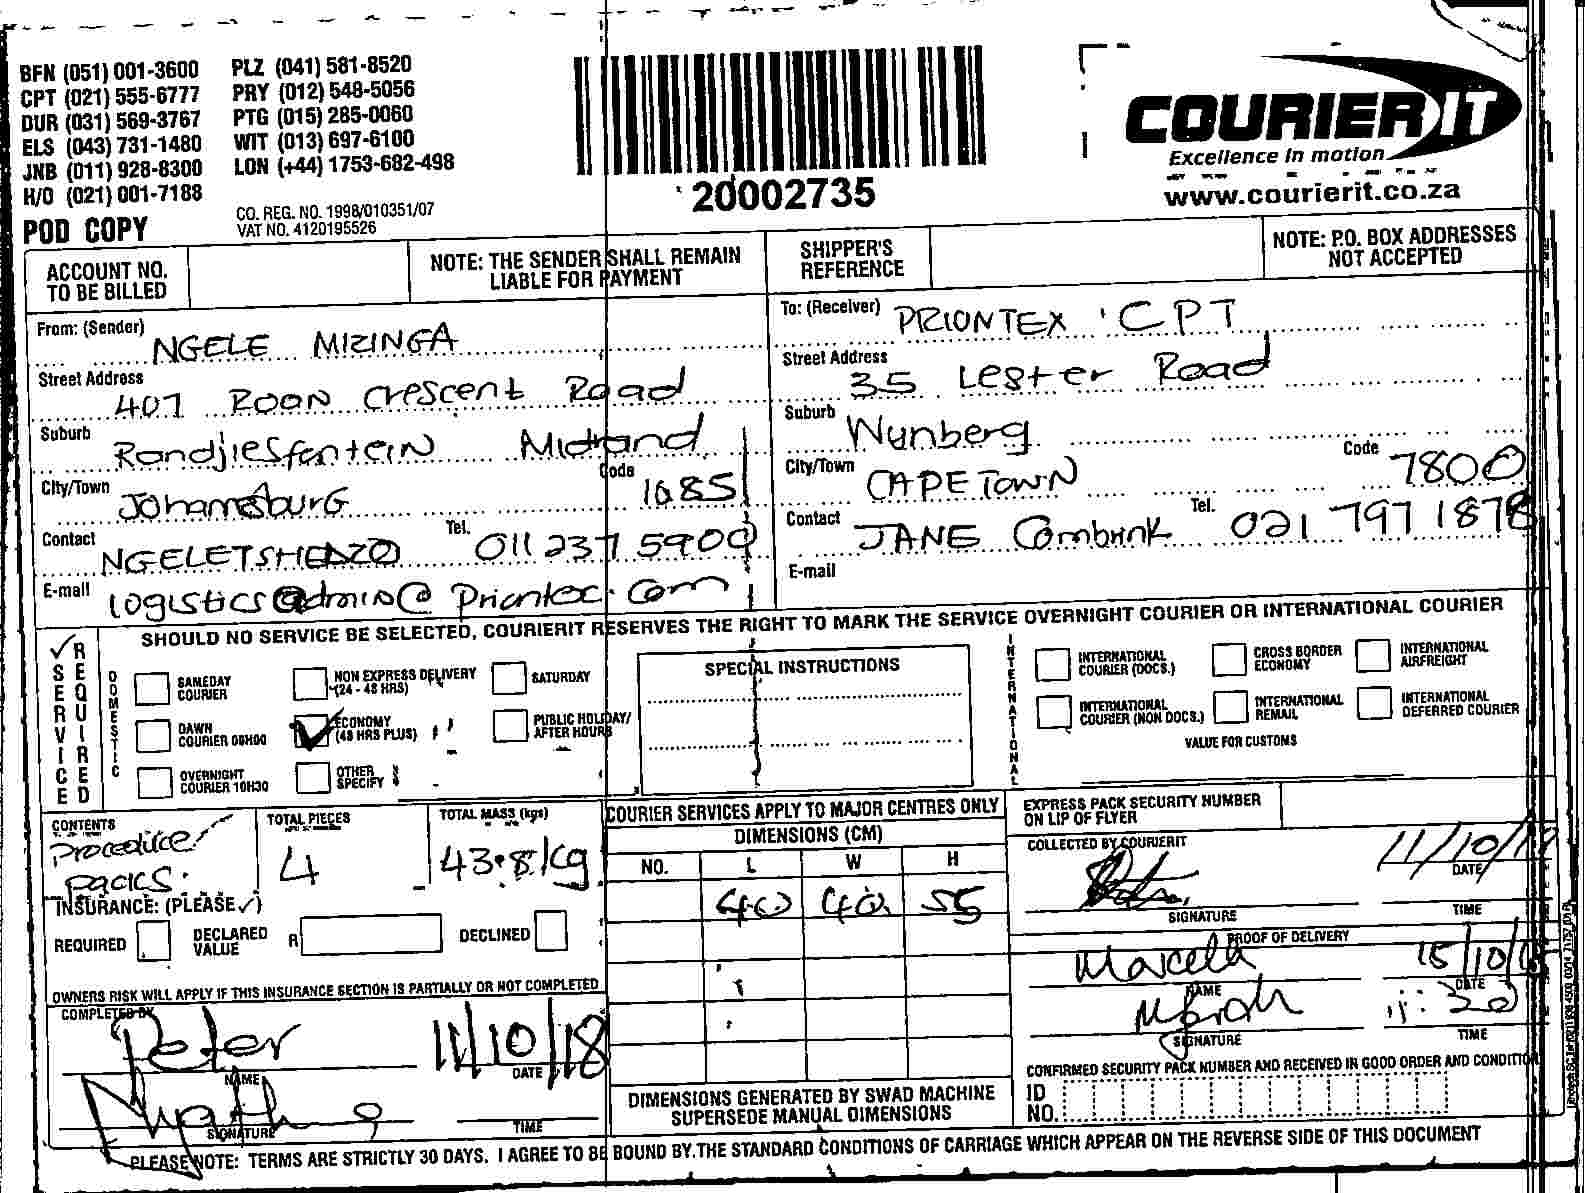 BFN (051) 001-3600 PLZ (041) 581-8520
CPT (021) 555-6777 PRY (012) 548-5056
DUR (031) 569-3767 PTG (015) 285-0060
ELS (043) 731-1480 WIT (013) 697-6100
JNB (011) 928-8300 LON (+44) 1753-682-498
H/O (021) 001-7188
POD COPY
CO. REG. NO. 1998/010351/07
VAT NO. 4120195526
20002735
COURIER IT
Excellence in motion
www.courierit.co.za
ACCOUNT NO. TO BE BILLED
NOTE: THE SENDER SHALL REMAIN LIABLE FOR PAYMENT
SHIPPER'S REFERENCE
NOTE: P.O. BOX ADDRESSES NOT ACCEPTED
From: (Sender) NGELE MIZINGA
Street Address 407 ROAN Crescent Road
Suburb Randjiesfontein Midrand
City/Town Johannesburg Code 1685
Contact NGELETSHEDZO Tel. 011 237 5900
E-mail logisticsadmin@Priontex.com
To: (Receiver) PRIONTEX CPT
Street Address 35 Lester Road
Suburb Wynberg
City/Town CAPE TOWN Code 7800
Contact JANE Combrink Tel. 021 797 1878
E-mail
SHOULD NO SERVICE BE SELECTED, COURIERIT RESERVES THE RIGHT TO MARK THE SERVICE OVERNIGHT COURIER OR INTERNATIONAL COURIER
✓ SERVICE REQUIRED
DOMESTIC
SAMEDAY COURIER
NON EXPRESS DELIVERY (24 - 48 HRS)
SATURDAY
DAWN COURIER 08H00
ECONOMY (48 HRS PLUS)
PUBLIC HOLIDAY/ AFTER HOURS
OVERNIGHT COURIER 10H30
OTHER SPECIFY
SPECIAL INSTRUCTIONS
INTERNATIONAL
INTERNATIONAL COURIER (DOCS.)
CROSS BORDER ECONOMY
INTERNATIONAL AIRFREIGHT
INTERNATIONAL COURIER (NON DOCS.)
INTERNATIONAL REMAIL
INTERNATIONAL DEFERRED COURIER
VALUE FOR CUSTOMS
CONTENTS Procedure packs
TOTAL PIECES 4
TOTAL MASS (kgs) 43.8 kg
INSURANCE: (PLEASE ✓)
REQUIRED
DECLARED VALUE R
DECLINED
OWNERS RISK WILL APPLY IF THIS INSURANCE SECTION IS PARTIALLY OR NOT COMPLETED
COMPLETED BY
Peter 11/10/18
NAME DATE
SIGNATURE TIME
COURIER SERVICES APPLY TO MAJOR CENTRES ONLY
DIMENSIONS (CM)
NO. L W H
40 40 55
DIMENSIONS GENERATED BY SWAD MACHINE SUPERSEDE MANUAL DIMENSIONS
EXPRESS PACK SECURITY NUMBER ON LIP OF FLYER
COLLECTED BY COURIERIT
11/10/
DATE
SIGNATURE TIME
PROOF OF DELIVERY
Marcela 15/10/
NAME DATE
11:30
SIGNATURE TIME
CONFIRMED SECURITY PACK NUMBER AND RECEIVED IN GOOD ORDER AND CONDITION
ID NO.
PLEASE NOTE: TERMS ARE STRICTLY 30 DAYS. I AGREE TO BE BOUND BY THE STANDARD CONDITIONS OF CARRIAGE WHICH APPEAR ON THE REVERSE SIDE OF THIS DOCUMENT